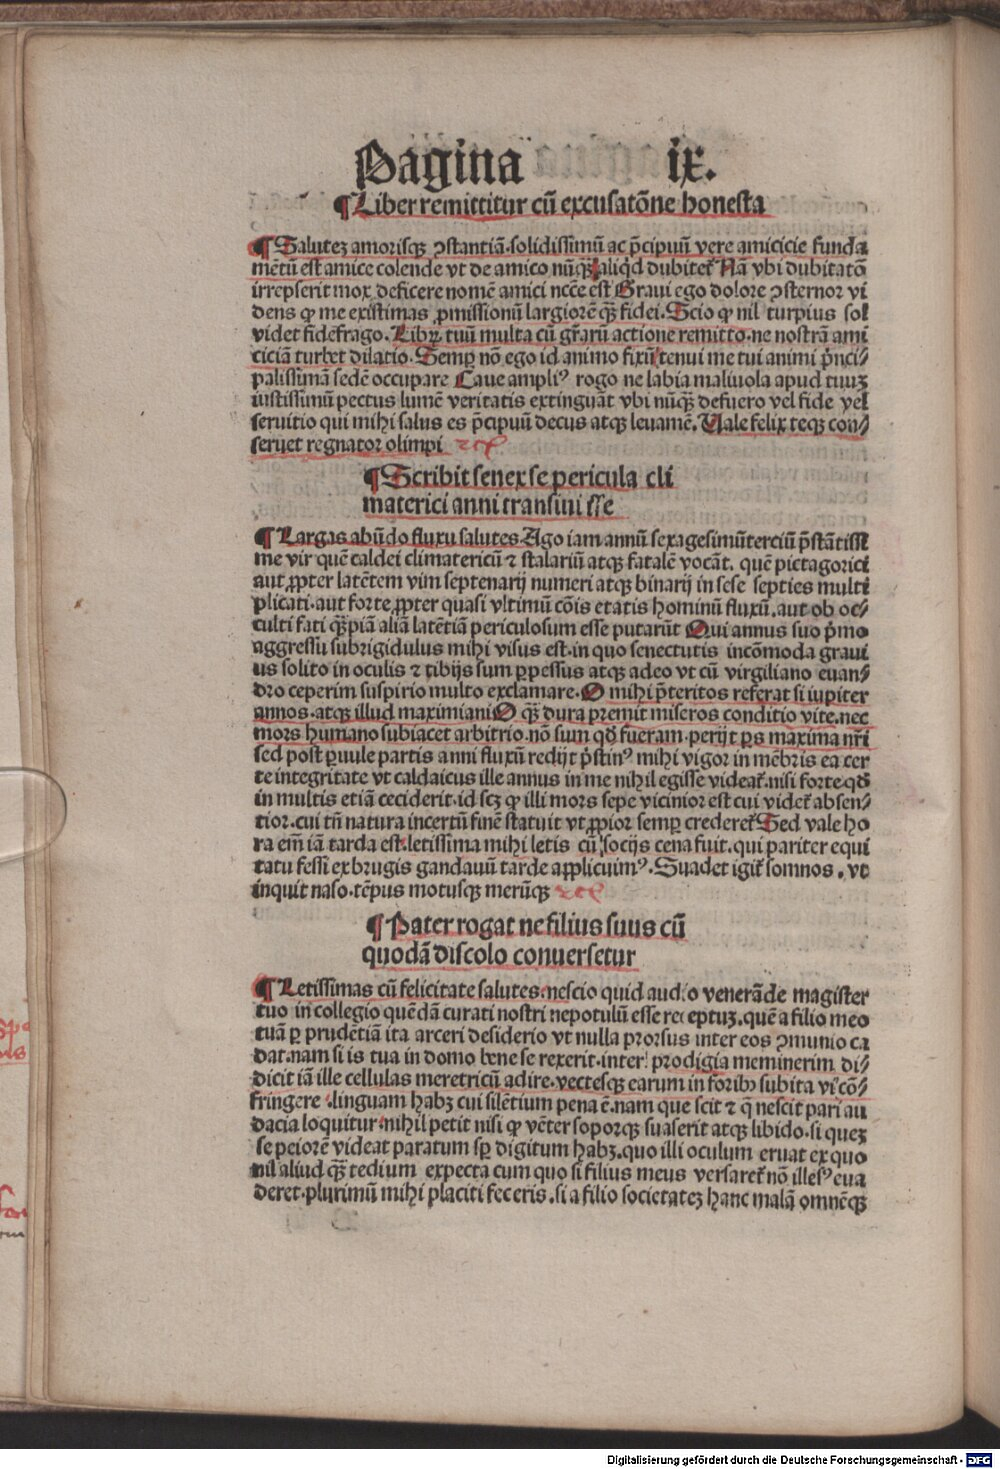 Pagina ix.
¶ Liber remittitur cū excusatōne honesta
¶ Salutez amorisqꝫ ꝯstantiā.solidissimū ac p̄cipuū vere amicicie funda
mētū est amice colende vt de amico nūqꝫ aliqd̄ dubitet᷑ Nā vbi dubitatō
irrepserit mox deficere nomē amici ncc̄e est Graui ego dolore ꝯsternor vi
dens ꝙ me existimas ꝓmissionū largiorē qꝫ̄ fidei.Scio ꝙ nil turpius sol
videt fidefrago.Libꝝ tuū multa cū gr̄arū actione remitto.ne nostrā ami
ciciā turbet dilatio.Semꝑ nō ego id animo fixū tenui me tui animi p̄nci⸗
palissimā sedē occupare Caue ampliꝰ rogo ne labia maliuola apud tuuz
iustissimū pectus lumē veritatis extinguāt vbi nūqꝫ̄ defuero vel fide vel
seruitio qui mihi salus es p̄cipuū decus atqꝫ leuamē.Vale felix teqꝫ con⸗
seruet regnator olimpi ⁊cͣ
¶ Scribit senex se pericula cli
materici anni transiuisse
¶ Largas abūdo fluxu salutes.Ago iam annū sexagesimūterciū p̄stātissī
me vir quē caldei climatericū ⁊ stalariū atqꝫ fatalē vocāt. quē pictagorici
aut ꝓpter latētem vim septenarij numeri atqꝫ binarij in sese septies multi
plicati.aut forte ꝓpter quasi vltimū cōis etatis hominū fluxū.aut ob oc⸗
culti fati qꝫ̄piā aliā latētiā periculosum esse putarūt Qui annus suo p̄mo
aggressu subrigidulus mihi visus est.in quo senectutis incōmoda graui
us solito in oculis ⁊ tibijs sum ꝑpessus atqꝫ adeo vt cū virgiliano euan⸗
dro ceperim suspirio multo exclamare.O mihi p̄teritos referat si iupiter
annos.atqꝫ illud maximiani O qꝫ̄ dura premit miseros conditio vite.nec
mors humano subiacet arbitrio.nō sum qd̄ fueram.perijt ꝑs maxima nr̄i
sed post ꝑuule partis anni fluxū redijt p̄stinꝰ mihi vigor in mēbris ea cer
te integritate vt caldaicus ille annus in me nihil egisse videat᷑.nisi forte qd̄
in multis etiā ceciderit.id scꝫ ꝙ illi mors sepe vicinior est cui videt᷑ absen⸗
tior.cui tn̄ natura incertū finē statuit vt ꝓpior semꝑ crederet᷑ Sed vale ho
ra em̄ iā tarda est.letissima mihi letis cū socijs cena fuit.qui pariter equi
tatu fessi ex brugis gandauū tarde applicuimꝰ.Suadet igit᷑ somnos.vt
inquit naso.tēpus motusqꝫ merūqꝫ ⁊cͣ
¶ Pater rogat ne filius suus cū
quodā discolo conuersetur
¶ Letissimas cū felicitate salutes.nescio quid audio venerāde magister
tuo in collegio quēdā curati nostri nepotulū esse receptuꝫ.quē a filio meo
tuā ꝑ prudētiā ita arceri desiderio vt nulla prorsus inter eos ꝯmunio ca
dat.nam si is tua in domo bene se rexerit.inter prodigia meminerim di⸗
dicit iā ille cellulas meretricū adire.vectesqꝫ earum in foribꝫ subita vi cō⸗
fringere.linguam habꝫ cui silētium pena ē.nam que scit ⁊ q̄ nescit pari au
dacia loquitur.nihil petit nisi ꝙ vēter soporqꝫ suaserit atqꝫ libido.si quez
se peiorē videat paratum sꝑ digitum habꝫ.quo illi oculum eruat ex quo
nil aliud qꝫ̄ tedium expecta cum quo si filius meus versaret᷑ nō illesꝰ eua
deret.plurimū mihi placiti feceris.si a filio societatez hanc malā omnēqꝫ
Digitalisierung gefördert durch die Deutsche Forschungsgemeinschaft - DFG